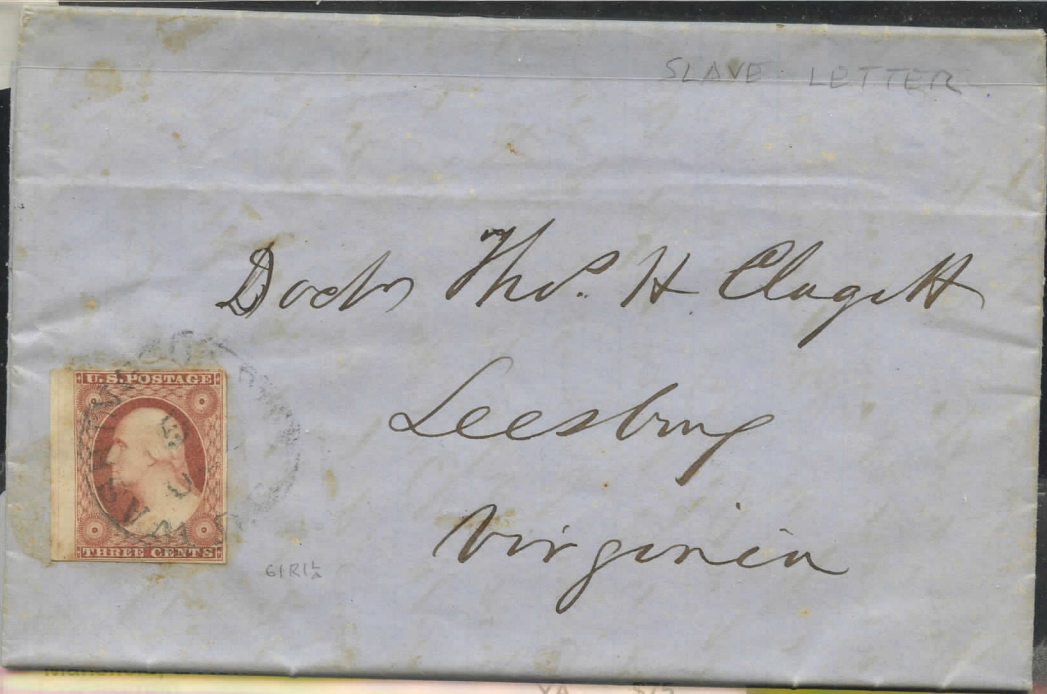 SLAVE LETTER
Doctr Thos. H Clagett
Leesburg
Virginia
U.S. POSTAGE
THREE CENTS
61R1L